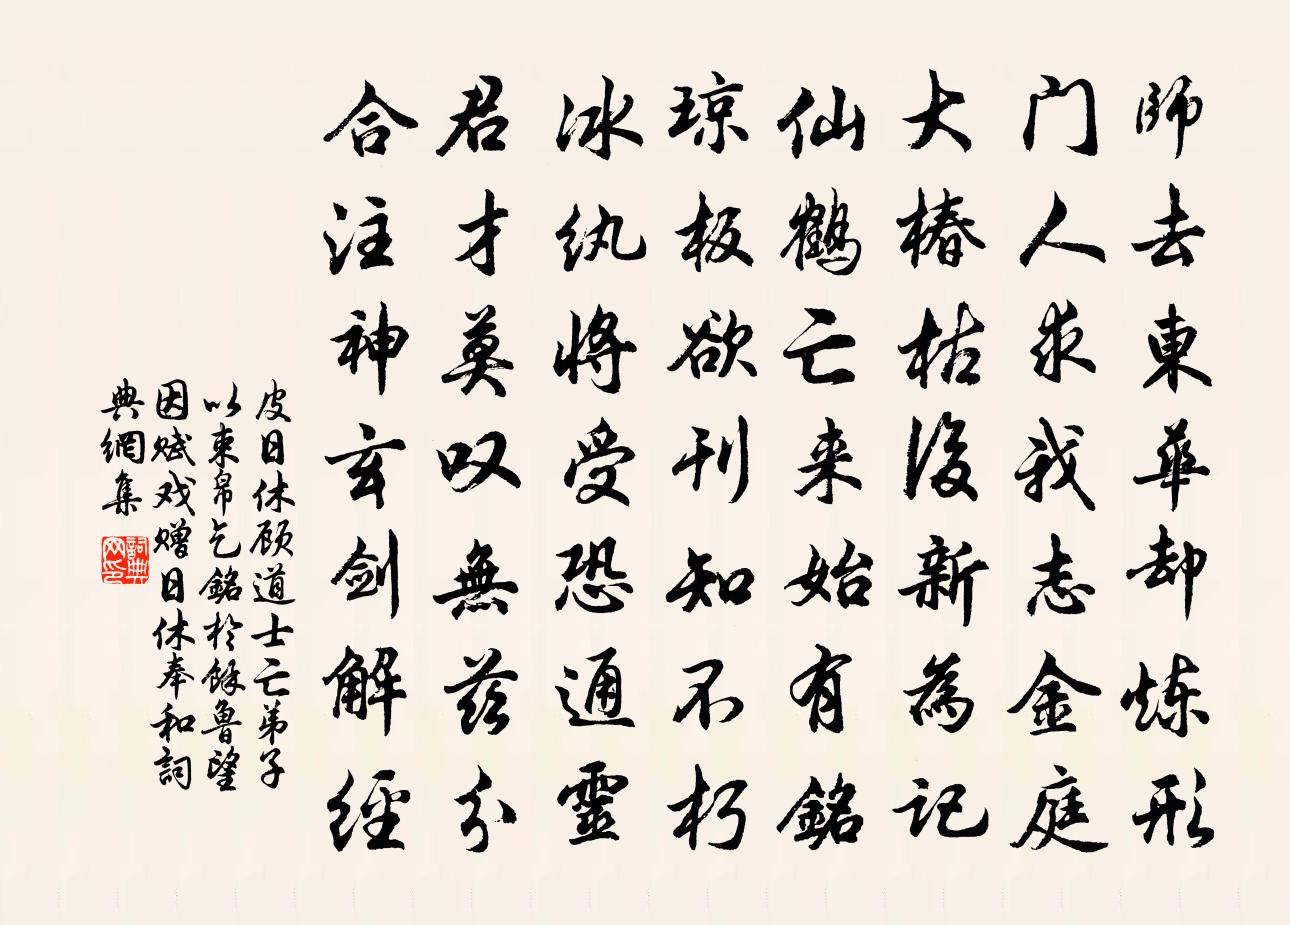 師去東華却炼形
门人求我志金庭
大椿枯後新為记
仙鶴亡来始有銘
琼板欲刊知不朽
冰纨将受恐通靈
君才莫叹無兹分
合注神玄剑解經
皮日休顾道士亡弟子
以束帛乞銘於餘魯望
因赋戏赠日休奉和詞
典網集
詞典
网印